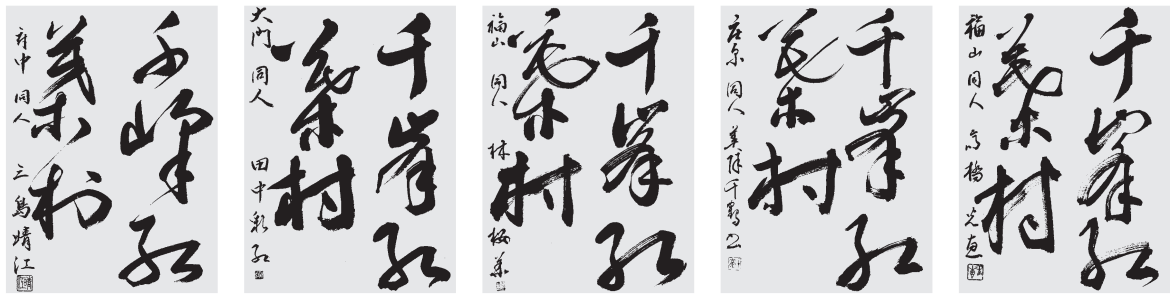 千峰紅
葉村
府中 同人 三島靖江
千峯紅
葉村
大門 同人 田中彩紅
千峯紅
葉村
福山 同人 林
千峯紅
葉村
庄原 同人
千峯紅
葉村
福山 同人 高橋光恵